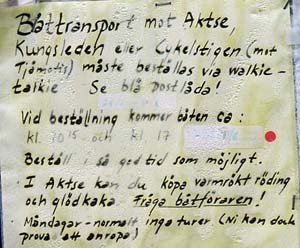 Båttransport mot Aktse,
Kungsleden eller Cykelstigen (mot
Tjåmotis) måste beställas via walkie-
talkie Se blå postlåda!
Vid beställning kommer båten ca:
kl. 10 15 och kl. 17
Beställ i så god tid som möjligt.
· I Aktse kan du köpa varmrökt röding
och glödkaka. Fråga båtföraren!
· Måndagar - normalt inga turer (Ni kan dock
prova att anropa)